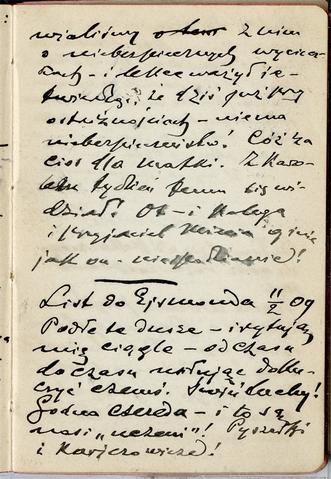 wieliśmy o tem z nim
o niebezpiecznych wyciecz-
kach - i lekceważył je -
twierdząc, że dziś już przy
ostrożnościach - niema
niebezpieczeństw! Cóż za
cios dla Matki. Z Karo-
tydzień temu się wi-
dział! Ot - i kolega
i przyjaciel ginie
jak on - niespodziewanie!
List do Ejsmonda 11/2 09
Podłe te dusze - irytują
mię ciągle - od czasu
do czasu usiłując doku-
czyć czemś. Świńtuchy!
Godna czereda - i to są
nasi „uczeni"! Pyszałki
i Karjerowicze!